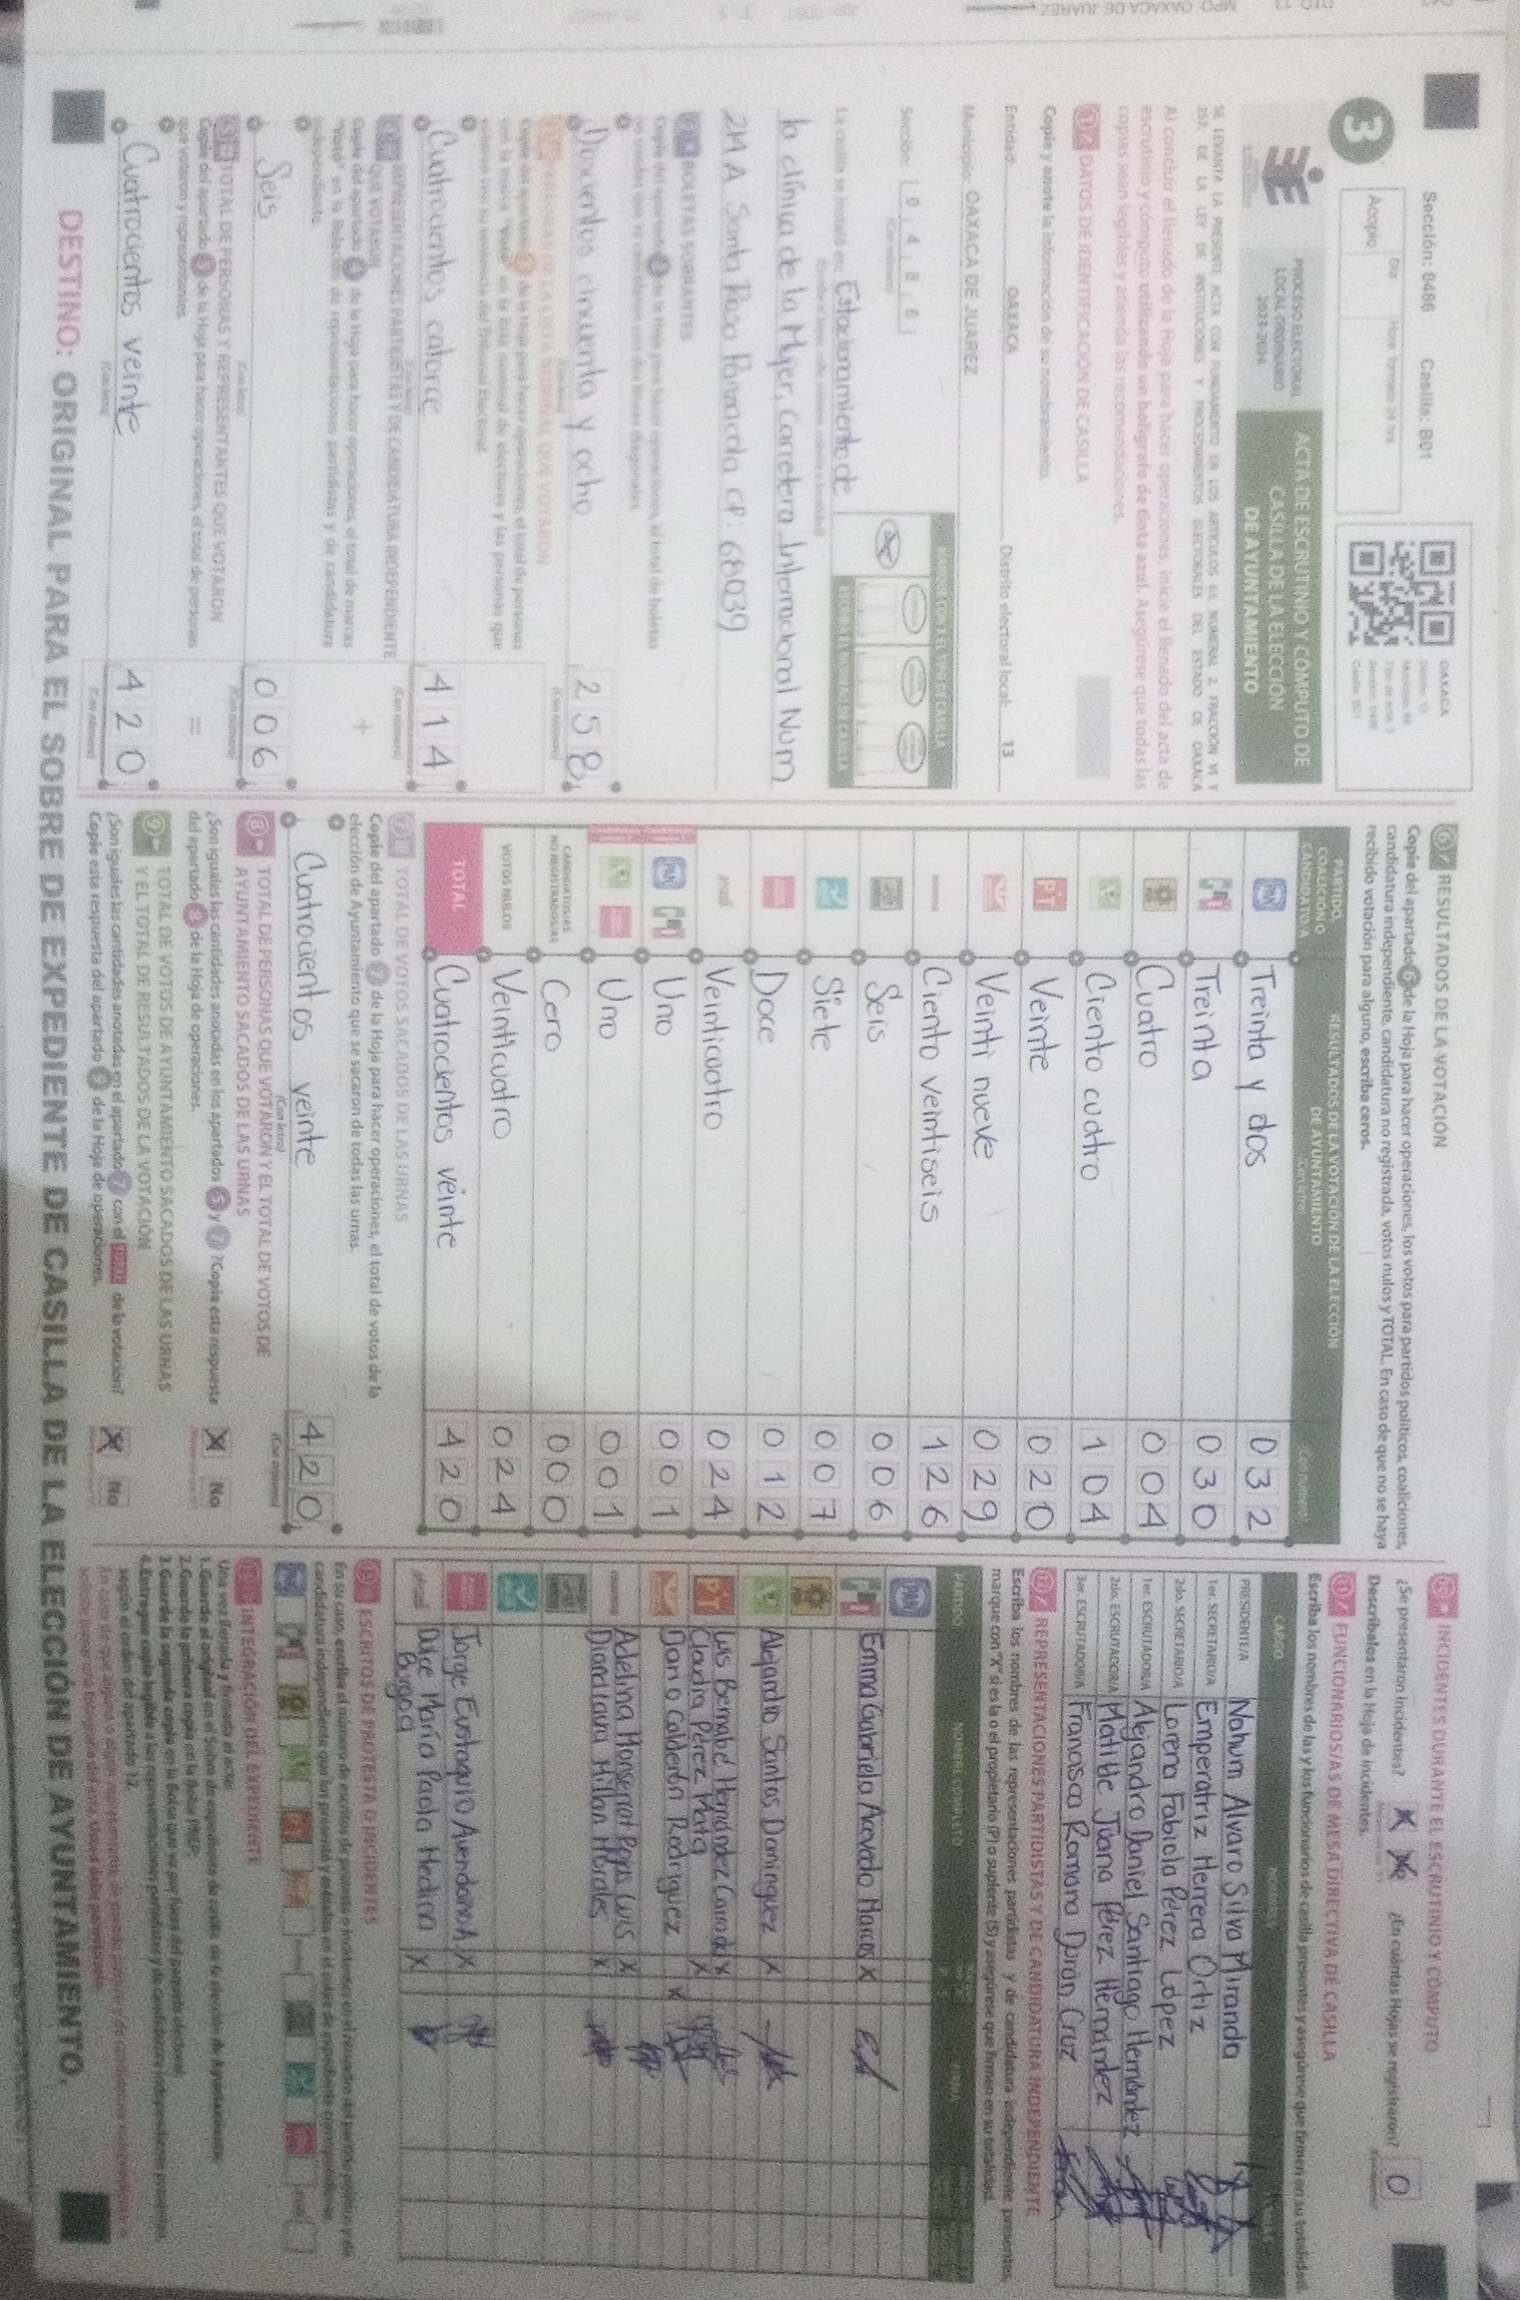 Sección: 0486 Casilla: B01
Día Hora formato 24 hrs.
Acopio
3
OAXACA
PROCESO ELECTORAL
LOCAL ORDINARIO
2023-2024
ACTA DE ESCRUTINIO Y CÓMPUTO DE
CASILLA DE LA ELECCIÓN
DE AYUNTAMIENTO
SE LEVANTA LA PRESENTE ACTA CON FUNDAMENTO EN LOS ARTÍCULOS 61, NUMERAL 2, FRACCIÓN VI Y
257, DE LA LEY DE INSTITUCIONES Y PROCEDIMIENTOS ELECTORALES DEL ESTADO DE OAXACA
Al concluir el llenado de la Hoja para hacer operaciones, inicie el llenado del acta de
escrutinio y cómputo utilizando un bolígrafo de tinta azul. Asegúrese que todas las
copias sean legibles y atienda las recomendaciones.
1 DATOS DE IDENTIFICACIÓN DE CASILLA
Copie y anote la información de su nombramiento.
Entidad: OAXACA Distrito electoral local: 13
Municipio: OAXACA DE JUAREZ
Sección: 0 4 8 6
MARQUE CON X EL TIPO DE CASILLA
ESCRIBA EL NÚMERO DE CASILLA
La casilla se instaló en: Estacionamiento de
la clínica de la Mujer, Carretera Internacional Num
2MA Santa Rosa Panzacola CP: 68039
2 BOLETAS SOBRANTES
Copie del apartado 2 de la Hoja para hacer operaciones, el total de boletas
no usadas que se cancelaron con dos líneas diagonales.
Docientos cincuenta y ocho 258
3 PERSONAS DE LA LISTA NOMINAL QUE VOTARON
Copie del apartado 3 de la Hoja para hacer operaciones, el total de personas
con la marca "Votó" en la lista nominal de electores y las personas que
votaron con su sentencia del Tribunal Electoral.
Cuatrocientos catorce 414
4 REPRESENTACIONES PARTIDISTAS Y DE CANDIDATURA INDEPENDIENTE
QUE VOTARON
Copie del apartado 4 de la Hoja para hacer operaciones, el total de marcas
"Votó" en la Relación de representaciones partidistas y de candidatura
independiente.
Seis 006
5 TOTAL DE PERSONAS Y REPRESENTANTES QUE VOTARON
Copie del apartado 5 de la Hoja para hacer operaciones, el total de personas
que votaron y representantes.
Cuatrocientos veinte 420
6 RESULTADOS DE LA VOTACIÓN
Copie del apartado 6 de la Hoja para hacer operaciones, los votos para partidos políticos, coaliciones,
candidatura independiente, candidatura no registrada, votos nulos y TOTAL. En caso de que no se haya
recibido votación para alguno, escriba ceros.
PARTIDO, COALICIÓN O CANDIDATO/A
RESULTADOS DE LA VOTACIÓN DE LA ELECCIÓN
DE AYUNTAMIENTO
(Con letra) (Con número)
PAN Treinta y dos 032
PRI Treinta 030
Cuatro 004
Ciento cuatro 104
PT Veinte 020
Veinti nueve 029
morena Ciento veintiseis 126
Seis 006
Siete 007
Doce 012
Veinticuatro 024
PAN PRI Uno 001
Uno 001
CANDIDATOS/AS NO REGISTRADOS/AS Cero 000
VOTOS NULOS Veinticuatro 024
TOTAL Cuatrocientos veinte 420
7 TOTAL DE VOTOS SACADOS DE LAS URNAS
Copie del apartado 7 de la Hoja para hacer operaciones, el total de votos de la
elección de Ayuntamiento que se sacaron de todas las urnas.
Cuatrocientos veinte 420
(Con letra) (Con número)
8 TOTAL DE PERSONAS QUE VOTARON Y EL TOTAL DE VOTOS DE
AYUNTAMIENTO SACADOS DE LAS URNAS
¿Son iguales las cantidades anotadas en los apartados 5 y 7? Copie esta respuesta
del apartado 8 de la Hoja de operaciones. X No
9 TOTAL DE VOTOS DE AYUNTAMIENTO SACADOS DE LAS URNAS
Y EL TOTAL DE RESULTADOS DE LA VOTACIÓN
¿Son iguales las cantidades anotadas en el apartado 7 con el TOTAL de la votación?
Copie esta respuesta del apartado 9 de la Hoja de operaciones. X No
10 INCIDENTES DURANTE EL ESCRUTINIO Y CÓMPUTO
¿Se presentaron incidentes? X No ¿En cuántas Hojas se registraron? 0
Descríbalos en la Hoja de incidentes.
11 FUNCIONARIOS/AS DE MESA DIRECTIVA DE CASILLA
Escriba los nombres de las y los funcionarios de casilla presentes y asegúrese que firmen en su totalidad.
CARGO NOMBRES FIRMAS
PRESIDENTE/A Nahum Alvaro Silva Miranda
1er. SECRETARIO/A Emperatriz Herrera Ortiz
2do. SECRETARIO/A Lorena Fabiola Pérez López
1er. ESCRUTADOR/A Alejandro Daniel Santiago Hernández
2do. ESCRUTADOR/A Matilde Juana Pérez Hernández
3er. ESCRUTADOR/A Francisca Romana Durán Cruz
12 REPRESENTACIONES PARTIDISTAS Y DE CANDIDATURA INDEPENDIENTE
Escriba los nombres de las representaciones partidistas y de candidatura independiente presentes,
marque con "X" si es la o el propietario (P) o suplente (S) y asegúrese que firmen en su totalidad.
PARTIDO NOMBRE COMPLETO FIRMA
PAN
PRI Emma Gabriela Acevedo Marcos X
Alejandro Santos Dominguez X
PT Luis Bernabé Hernández X
Claudia Pérez Mata X
Dario Calderón Rodriguez X
morena Adelina Monserrat Luis X
Diana Laura Millan Morales X
Jorge Eustaquio Avendaño A X
Dulce María Paola Medina X
Burgoa
13 ESCRITOS DE PROTESTA O INCIDENTES
En su caso, escriba el número de escritos de protesta o incidentes en el recuadro del partido político y de
candidatura independiente que los presentó y métalos en el sobre de expediente correspondiente.
14 INTEGRACIÓN DEL EXPEDIENTE
Una vez llenada y firmada el acta:
1. Guarde el original en el Sobre de expediente de casilla de la elección de Ayuntamiento.
2. Guarde la primera copia en la Bolsa PREP.
3. Guarde la segunda copia en la Bolsa que va por fuera del paquete electoral.
4. Entregue copia legible a las representaciones partidistas y de candidatura independiente presentes,
según el orden del apartado 12.
DESTINO: ORIGINAL PARA EL SOBRE DE EXPEDIENTE DE CASILLA DE LA ELECCIÓN DE AYUNTAMIENTO.